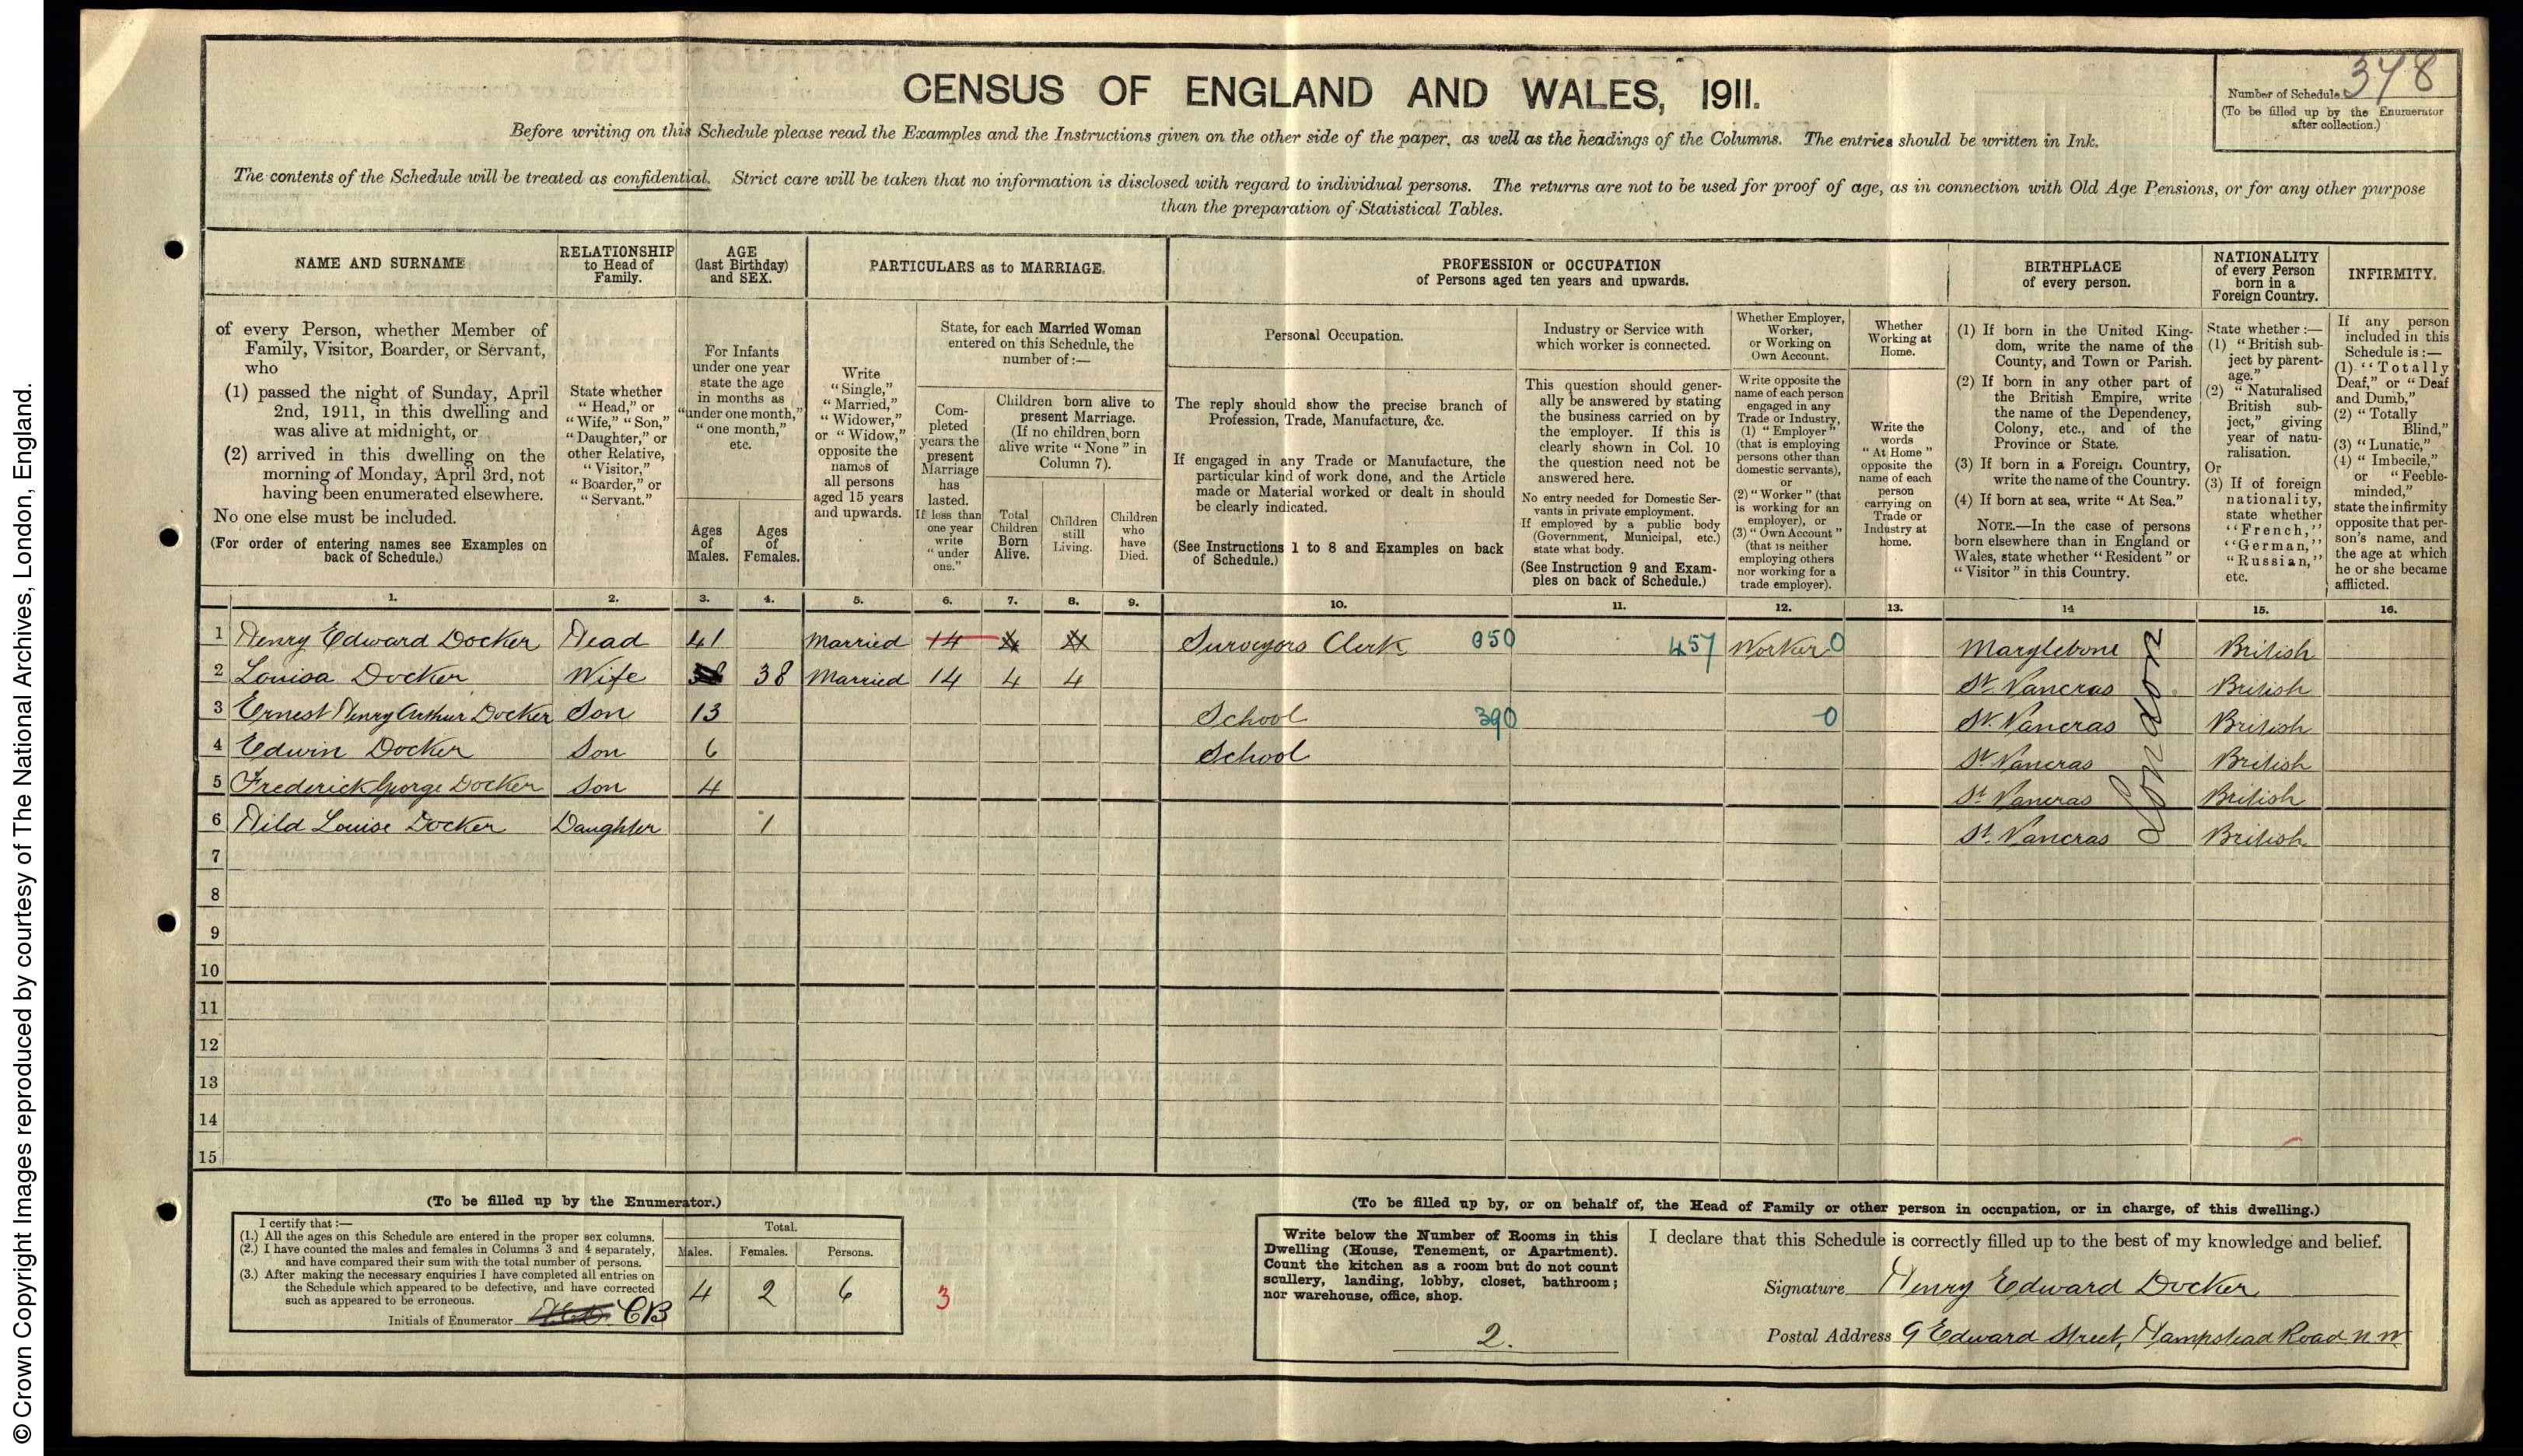 © Crown Copyright Images reproduced by courtesy of The National Archives, London, England.
CENSUS OF ENGLAND AND WALES, 1911.
Number of Schedule 378
(To be filled up by the Enumerator
after collection.)
Before writing on this Schedule please read the Examples and the Instructions given on the other side of the paper, as well as the headings of the Columns. The entries should be written in Ink.
The contents of the Schedule will be treated as confidential. Strict care will be taken that no information is disclosed with regard to individual persons. The returns are not to be used for proof of age, as in connection with Old Age Pensions, or for any other purpose
than the preparation of Statistical Tables.
NAME AND SURNAME
of every Person, whether Member of
Family, Visitor, Boarder, or Servant,
who
(1) passed the night of Sunday, April
2nd, 1911, in this dwelling and
was alive at midnight, or
(2) arrived in this dwelling on the
morning of Monday, April 3rd, not
having been enumerated elsewhere.
No one else must be included.
(For order of entering names see Examples on
back of Schedule.)
RELATIONSHIP
to Head of
Family.
State whether
"Head," or
"Wife," "Son,"
"Daughter," or
other Relative,
"Visitor,"
"Boarder," or
"Servant."
AGE
(last Birthday)
and SEX.
For Infants
under one year
state the age
in months as
"under one month,"
"one month,"
etc.
Ages
of
Males.
Ages
of
Females.
PARTICULARS as to MARRIAGE.
Write
"Single,"
"Married,"
"Widower,"
or "Widow,"
opposite the
names of
all persons
aged 15 years
and upwards.
State, for each Married Woman
entered on this Schedule, the
number of:—
Com-
pleted
years the
present
Marriage
has
lasted.
If less than
one year
write
"under
one."
Children born alive to
present Marriage.
(If no children born
alive write "None" in
Column 7).
Total
Children
Born
Alive.
Children
still
Living.
Children
who
have
Died.
PROFESSION or OCCUPATION
of Persons aged ten years and upwards.
Personal Occupation.
The reply should show the precise branch of
Profession, Trade, Manufacture, &c.
If engaged in any Trade or Manufacture, the
particular kind of work done, and the Article
made or Material worked or dealt in should
be clearly indicated.
(See Instructions 1 to 8 and Examples on back
of Schedule.)
Industry or Service with
which worker is connected.
This question should gener-
ally be answered by stating
the business carried on by
the employer. If this is
clearly shown in Col. 10
the question need not be
answered here.
No entry needed for Domestic Ser-
vants in private employment.
If employed by a public body
(Government, Municipal, etc.)
state what body.
(See Instruction 9 and Exam-
ples on back of Schedule.)
Whether Employer,
Worker,
or Working on
Own Account.
Write opposite the
name of each person
engaged in any
Trade or Industry,
(1) "Employer"
(that is employing
persons other than
domestic servants),
or
(2) "Worker" (that
is working for an
employer), or
(3) "Own Account"
(that is neither
employing others
nor working for a
trade employer).
Whether
Working at
Home.
Write the
words
"At Home"
opposite the
name of each
person
carrying on
Trade or
Industry at
home.
BIRTHPLACE
of every person.
(1) If born in the United King-
dom, write the name of the
County, and Town or Parish.
(2) If born in any other part of
the British Empire, write
the name of the Dependency,
Colony, etc., and of the
Province or State.
(3) If born in a Foreign Country,
write the name of the Country.
(4) If born at sea, write "At Sea."
NOTE.—In the case of persons
born elsewhere than in England or
Wales, state whether "Resident" or
"Visitor" in this Country.
NATIONALITY
of every Person
born in a
Foreign Country.
State whether:—
(1) "British sub-
ject by parent-
age."
(2) "Naturalised
British sub-
ject," giving
year of natu-
ralisation.
Or
(3) If of foreign
nationality,
state whether
"French,"
"German,"
"Russian,"
etc.
INFIRMITY.
If any person
included in this
Schedule is:—
(1) "Totally
Deaf," or "Deaf
and Dumb,"
(2) "Totally
Blind,"
(3) "Lunatic,"
(4) "Imbecile,"
or "Feeble-
minded,"
state the infirmity
opposite that per-
son's name, and
the age at which
he or she became
afflicted.
1. 2. 3. 4. 5. 6. 7. 8. 9. 10. 11. 12. 13. 14 15. 16.
1 Henry Edward Docker Head 41 Married 14 4 4 Surveyors Clerk 050 457 Worker 0 Marylebone British
2 Louisa Docker Wife 38 38 Married 14 4 4 St. Pancras British
3 Ernest Henry Arthur Docker Son 13 School 390 0 St. Pancras British
4 Edwin Docker Son 6 School St Pancras British
5 Frederick George Docker Son 4 St Pancras British
6 Hild Louise Docker Daughter 1 St. Pancras British
London
7
8
9
10
11
12
13
14
15
(To be filled up by the Enumerator.)
I certify that:—
(1.) All the ages on this Schedule are entered in the proper sex columns.
(2.) I have counted the males and females in Columns 3 and 4 separately,
and have compared their sum with the total number of persons.
(3.) After making the necessary enquiries I have completed all entries on
the Schedule which appeared to be defective, and have corrected
such as appeared to be erroneous.
Initials of Enumerator CB
Total.
Males. Females. Persons.
4 2 6
3
(To be filled up by, or on behalf of, the Head of Family or other person in occupation, or in charge, of this dwelling.)
Write below the Number of Rooms in this
Dwelling (House, Tenement, or Apartment).
Count the kitchen as a room but do not count
scullery, landing, lobby, closet, bathroom;
nor warehouse, office, shop.
2.
I declare that this Schedule is correctly filled up to the best of my knowledge and belief.
Signature Henry Edward Docker
Postal Address 9 Edward Street, Hampstead Road N W